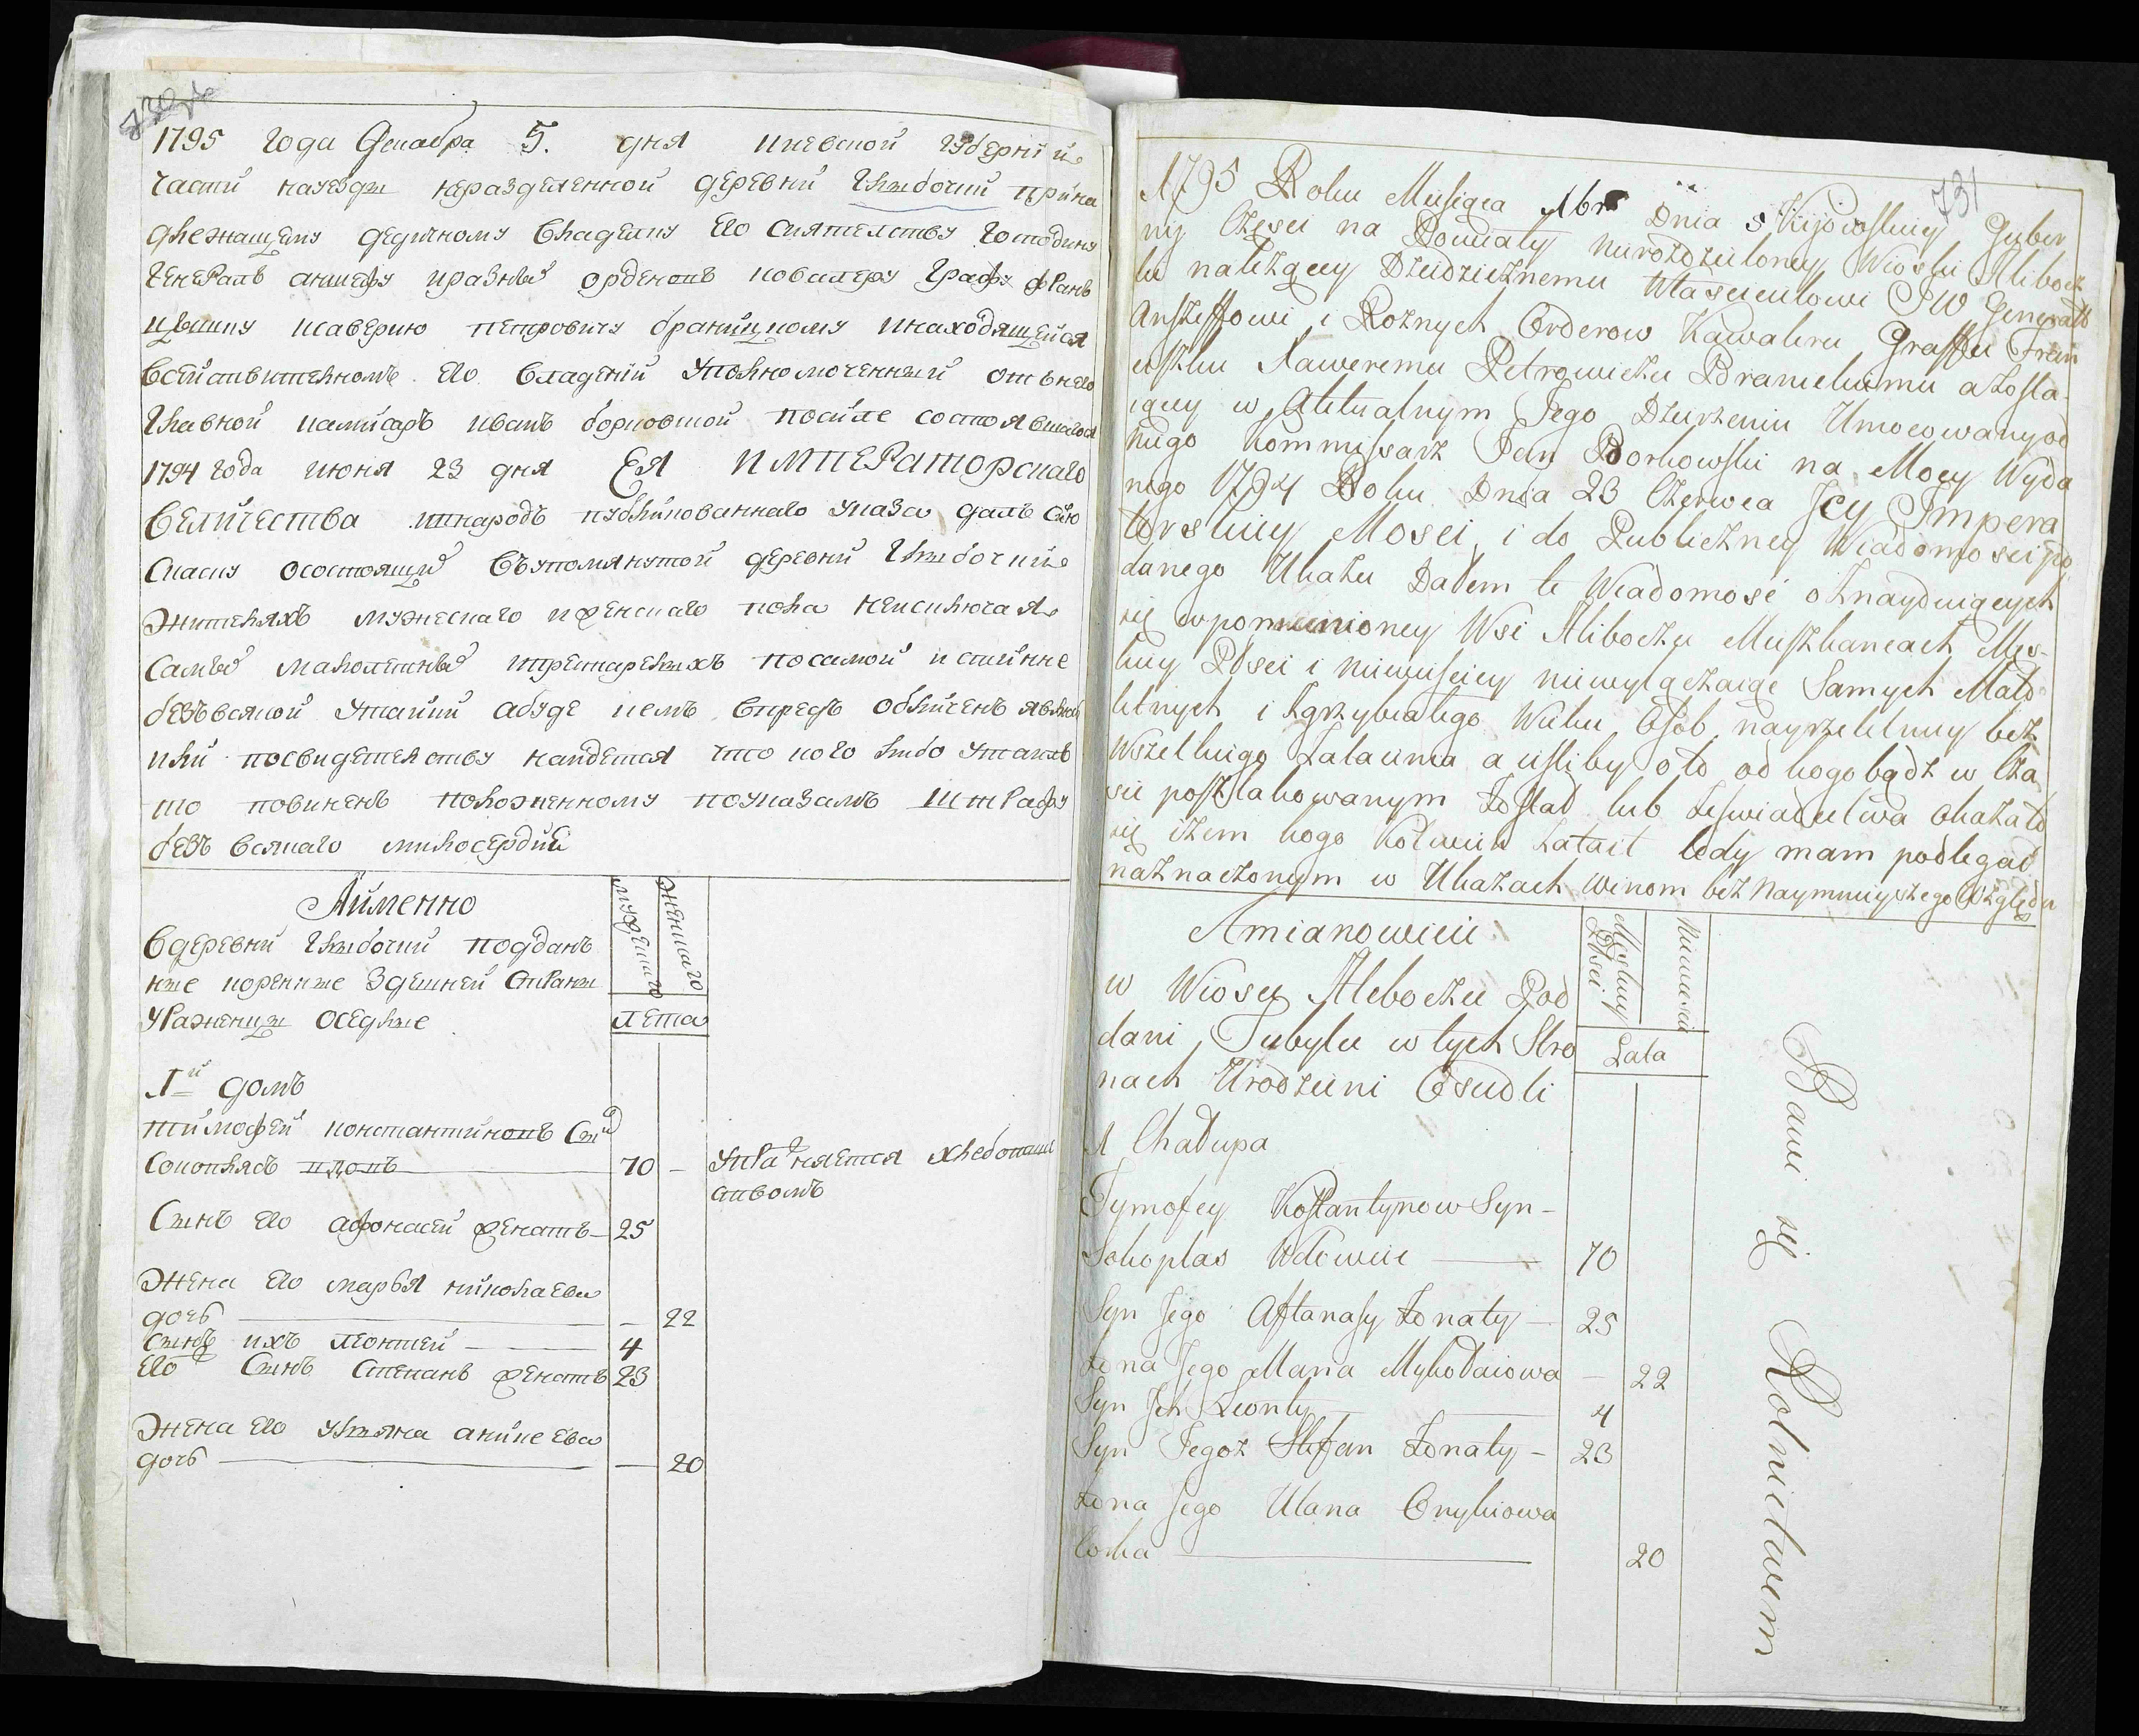 1795 года Декабра 5. дня киевской губернïи
части науезды неразделенной деревни Глыбочки прина
длежащему дедичному владелцу Его Сиятелству Господину
Генералъ аншефу иразныхъ орденовъ ковалеру Графу Фран
цышку ксаверию петровичу браницкому инаходящейся
Его владений уполномоченный отънего
главной камисаръ иванъ борковшой посиле состоявшагося
1794 года июня 23 дня ЕЯ ИМПЕРАТОРСкаго
ВЕЛИЧЕСТВА внародъ публикованнаго указа далъ сию
Скаску осостоящихъ въупомянутой деревни Глыбочки
жителяхъ мужескаго иженскаго пола неисключая
самыхъ малолетныхъ ипрестарелыхъ посамой истинне
безъвсякой утайки абуде кемъ впредь обличенъ явлюсь
или посвидетелству найдется что кого либо утаилъ
то повиненъ положенному поуказамъ штрафу
безъ всякаго милосердия
Аименно
мужескаго
женскаго
вдеревни Глыбочки поддан
ные коренные здешней страны
Уроженцы оседлые
лета
1й домъ
тимофей константиновъ сынъ
Сокоплясъ вдовъ 70 –
Упражняется хлебопаш
ствомъ
Сынъ его афонасей женатъ 25
Жена его марья николаева
дочь – 22
Сынъ ихъ леонтей 4
Его Сынъ Степанъ женатъ 23
Жена его ульяна аникеева
дочь – 20
731
1795 Roku Miesiąca Xbr Dnia 5 Kijowskiey Guber
nij Częsci na Powiaty nierozdzieloney Wioski Hlibocz
ki należącey Dziedzicznemu Własicielowi JW Generałł
Anszeffowi i Rożnych Orderow Kawaleru Graffu Fran
ciszku Xaweremu Petrowiczu Branickiemu a zosta-
iącey w Aktualnym Jego Dzierżeniu Umocowany od
niego Kommissarz Jan Borkowski na Mocy Wyda
nego 1794 Roku Dnia 23 Czerwca Jey Impera
torskiey Mosci i do Publiczney Wiadomosci po
danego Ukazu Dałem te Wiadomosć o znayduiących
się wpomienioney Wsi Hliboczku Mieszkancach Mes-
kiey Płsci i niewiesciey niewyłączaiąc Samych Mało
letnych i zgrzybiałego Wieku Osob nayrzetelniey bez
Wszelkiego Zataienia a iesliby o to od kogo bądz w Cza
sie poszlakowanym został lub zeswiadectwa okazało
się iżem kogo Kolwiek zataił tedy mam podlegać
naznaczonym w Ukazach winom bez naymnieyszego Względu
Amianowicie
Meskiey Płsci
Niewiesci
w Wioscy Hleboczku Pod
dani Tubylcy w tych Stro
nach Urodzeni Osiedli
Lata
1 Chałupa
Tymofey Kostantynow Syn –
Sokoplas Wdowiec 70
Syn Jego Aftanasy żonaty – 25
żona Jego Maria Mykołaiowa – 22
Syn Ich Leonty 4
Syn Jegoż Stefan żonaty – 23
żona Jego Ulana Onykiowa
Corka 20
Bawi się Rolnictwem